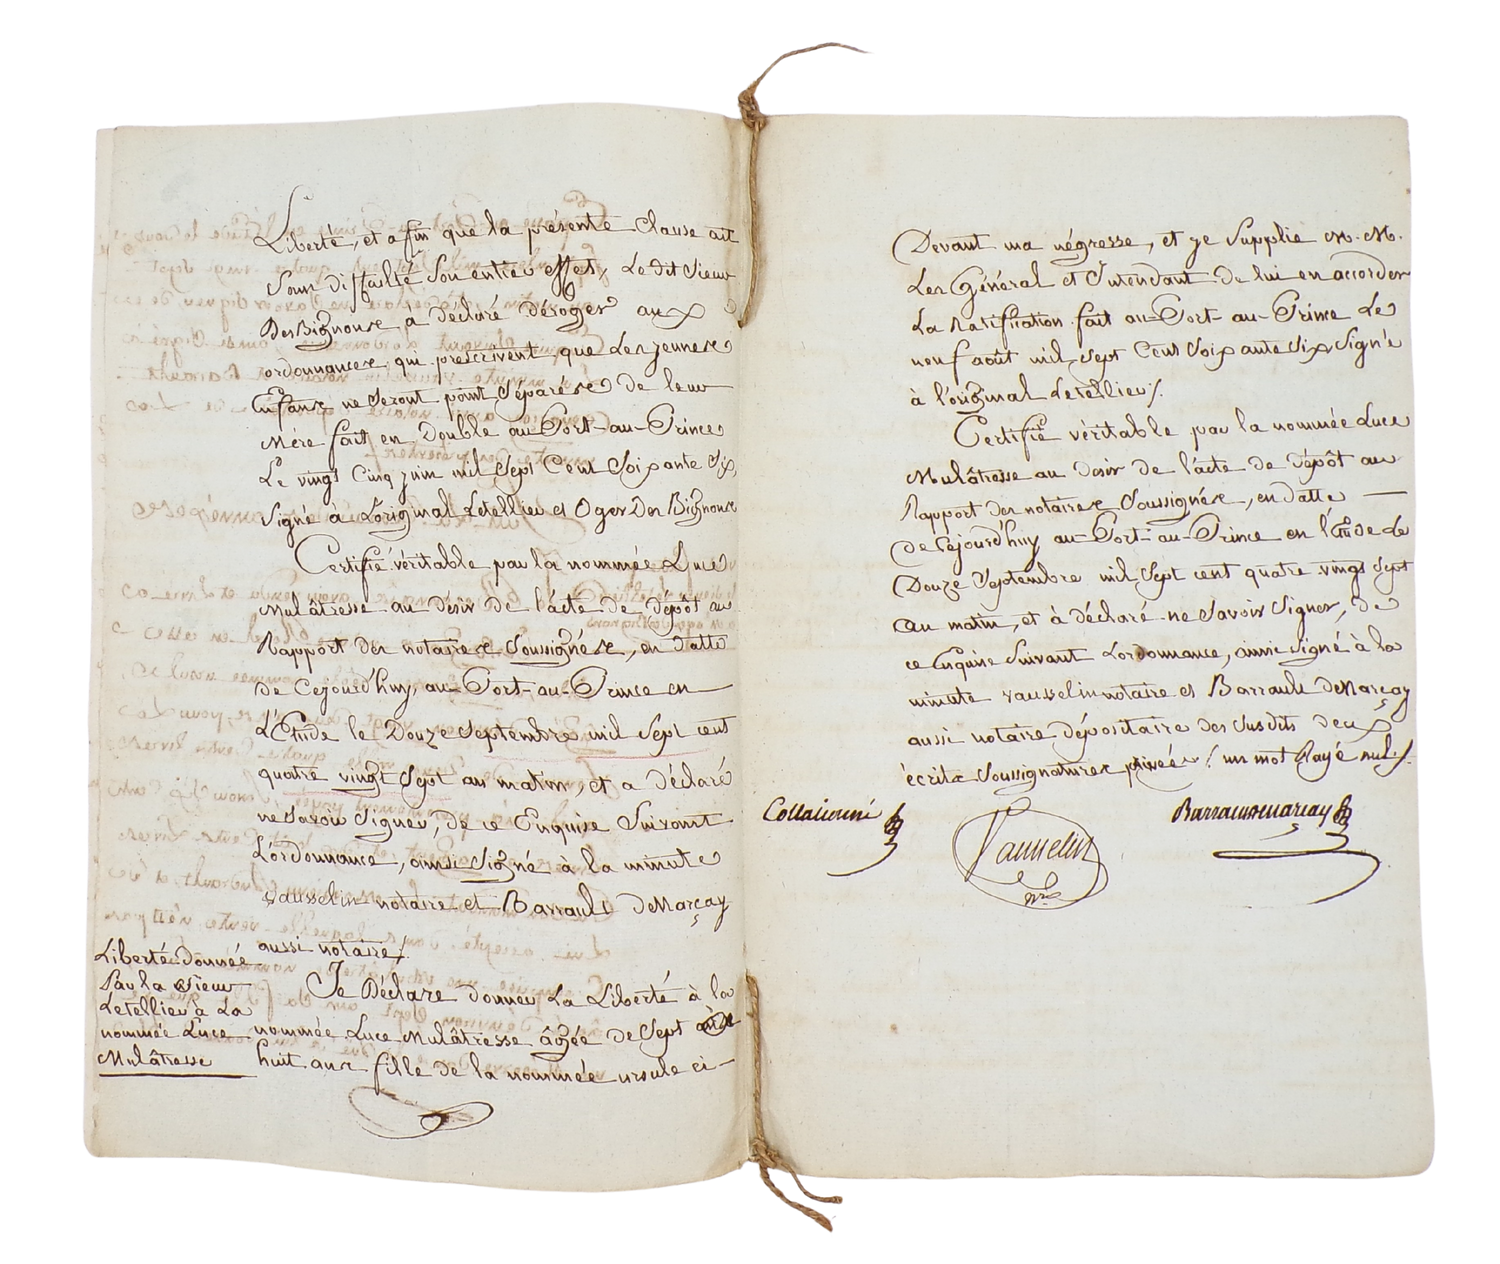 Liberté, et afin que la présente Clause ait
Son diffaîlté Son entier effet, Le dit Sieur
Des Bignoux a déclaré déroger aux
ordonnances, qui prescrivent, que Les jeunes
Enfans ne Seront point Séparés de leur
Mère fait en Double au Port-au-Prince
Le vingt Cinq juin mil Sept Cent Soixante Six
Signé à L'original Letellier et Oger Des Bignoux
Certifié véritable par la nommée Luce
Mulâtresse au désir de l'acte de dépôt au
Rapport des notaires Soussignés, en datte
de Cejourd'huy, au-Port-au-Prince en
L'Etude le Douze Septembre mil Sept cent
quatre vingt Sept au matin, et a déclaré
ne Savoir Signer, de ce Enquise Suivant
L'ordonnance, ainsi Signé à la minute
Vausselin notaire et Barrault DeNarçay
aussi notaire /.
Liberté donnée
Par la Sieur
Letellier à La
nommée Luce
Mulâtresse
Je Déclare donner La Liberté à la
nommée Luce Mulâtresse âgée de Sept
huit ans fille de la nommée ursule ci-
Devant ma négresse, et je Supplie M. M.
Les Général et Intendant de lui en accorder
La Ratification fait au-Port-au-Prince Le
neuf août mil Sept Cent Soixante Six Signé
à l'original Letellier /.
Certifié véritable par la nommée Luce
Mulâtresse au desir de l'acte de dépôt au
Rapport des notaires Soussignés, en datte
de Cejourd'huy au-Port-au-Prince en l'Etude Le
Douze Septembre mil Sept cent quatre vingt Sept
au matin, et à déclaré ne Savoir Signer, de
ce Enquise Suivant Lordonnance, ainsi Signé à la
minute Vausselin notaire et Barrault DeNarçay
aussi notaire dépositaire des Susdits deux
écrits Soussignatures privées / un mot Rayé nul /.
Collationné
Vausselin
nre
Barraultdenarcay